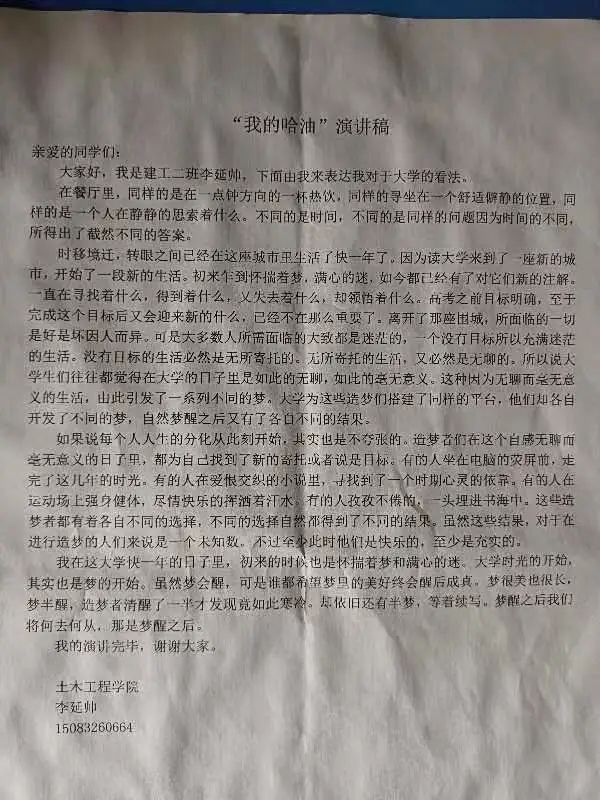 “我的哈油”演讲稿
亲爱的同学们：
大家好，我是建工二班李延帅，下面由我来表达我对于大学的看法。
在餐厅里，同样的是在一点钟方向的一杯热饮，同样的寻坐在一个舒适僻静的位置，同
样的是一个人在静静的思索着什么。不同的是时间，不同的是同样的问题因为时间的不同，
所得出了截然不同的答案。
时移境迁，转眼之间已经在这座城市里生活了快一年了。因为读大学来到了一座新的城
市，开始了一段新的生活。初来乍到怀揣着梦，满心的迷，如今都已经有了对它们新的注解。
一直在寻找着什么，得到着什么，又失去着什么，却领悟着什么。高考之前目标明确，至于
完成这个目标后又会迎来新的什么，已经不在那么重要了。离开了那座围城，所面临的一切
是好是坏因人而异。可是大多数人所需面临的大致都是迷茫的，一个没有目标所以充满迷茫
的生活。没有目标的生活必然是无所寄托的。无所寄托的生活，又必然是无聊的。所以说大
学生们往往都觉得在大学的日子里是如此的无聊，如此的毫无意义。这种因为无聊而毫无意
义的生活，由此引发了一系列不同的梦。大学为这些造梦们搭建了同样的平台，他们却各自
开发了不同的梦，自然梦醒之后又有了各自不同的结果。
如果说每个人人生的分化从此刻开始，其实也是不夸张的。造梦者们在这个自感无聊而
毫无意义的日子里，都为自己找到了新的寄托或者说是目标。有的人坐在电脑的荧屏前，走
完了这几年的时光。有的人在爱恨交织的小说里，寻找到了一个时期心灵的依靠。有的人在
运动场上强身健体，尽情快乐的挥洒着汗水。有的人孜孜不倦的，一头埋进书海中。这些造
梦者都有着各自不同的选择，不同的选择自然都得到了不同的结果。虽然这些结果，对于在
进行造梦的人们来说是一个未知数。不过至少此时他们是快乐的，至少是充实的。
我在这大学快一年的日子里，初来的时候也是怀揣着梦和满心的迷。大学时光的开始，
其实也是梦的开始。虽然梦会醒，可是谁都希望梦里的美好终会醒后成真。梦很美也很长，
梦半醒，造梦者清醒了一半才发现竟如此寒冷。却依旧还有半梦，等着续写。梦醒之后我们
将何去何从，那是梦醒之后。
我的演讲完毕，谢谢大家。
土木工程学院
李延帅
15083260664